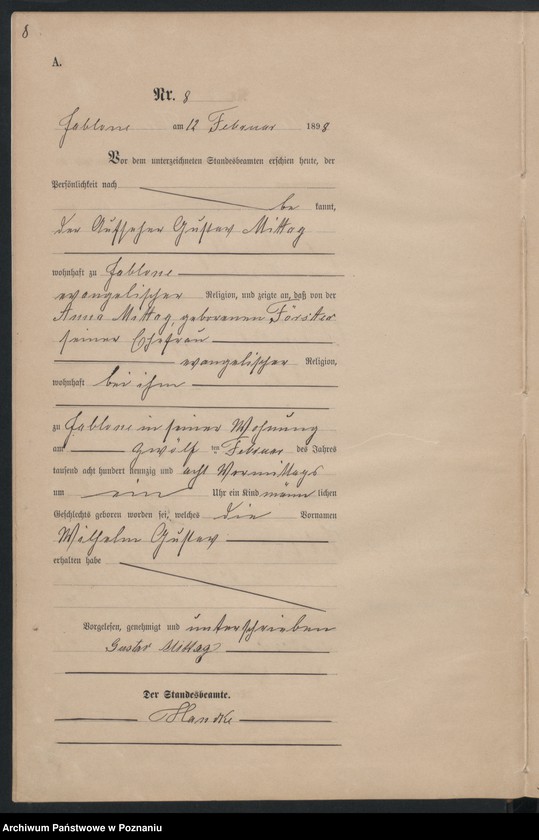 8
A.
Nr. 8
Jablone am 12 Februar 1898
Vor dem unterzeichneten Standesbeamten erschien heute, der
Persönlichkeit nach
be kannt,
der Aufseher Gustav Mittag
wohnhaft zu Jablone
evangelischer Religion, und zeigte an, daß von der
Anna Mittag geborenen Förster
seiner Ehefrau
evangelischer Religion,
wohnhaft bei ihm
zu Jablone in seiner Wohnung
am zwölf ten Februar des Jahres
tausend acht hundert neunzig und acht Vormittags
um ein Uhr ein Kind männ lichen
Geschlechts geboren worden sei, welches die Vornamen
Wilhelm Gustav
erhalten habe
Vorgelesen, genehmigt und unterschrieben
Gustav Mittag
Der Standesbeamte.
Archiwum Państwowe w Poznaniu